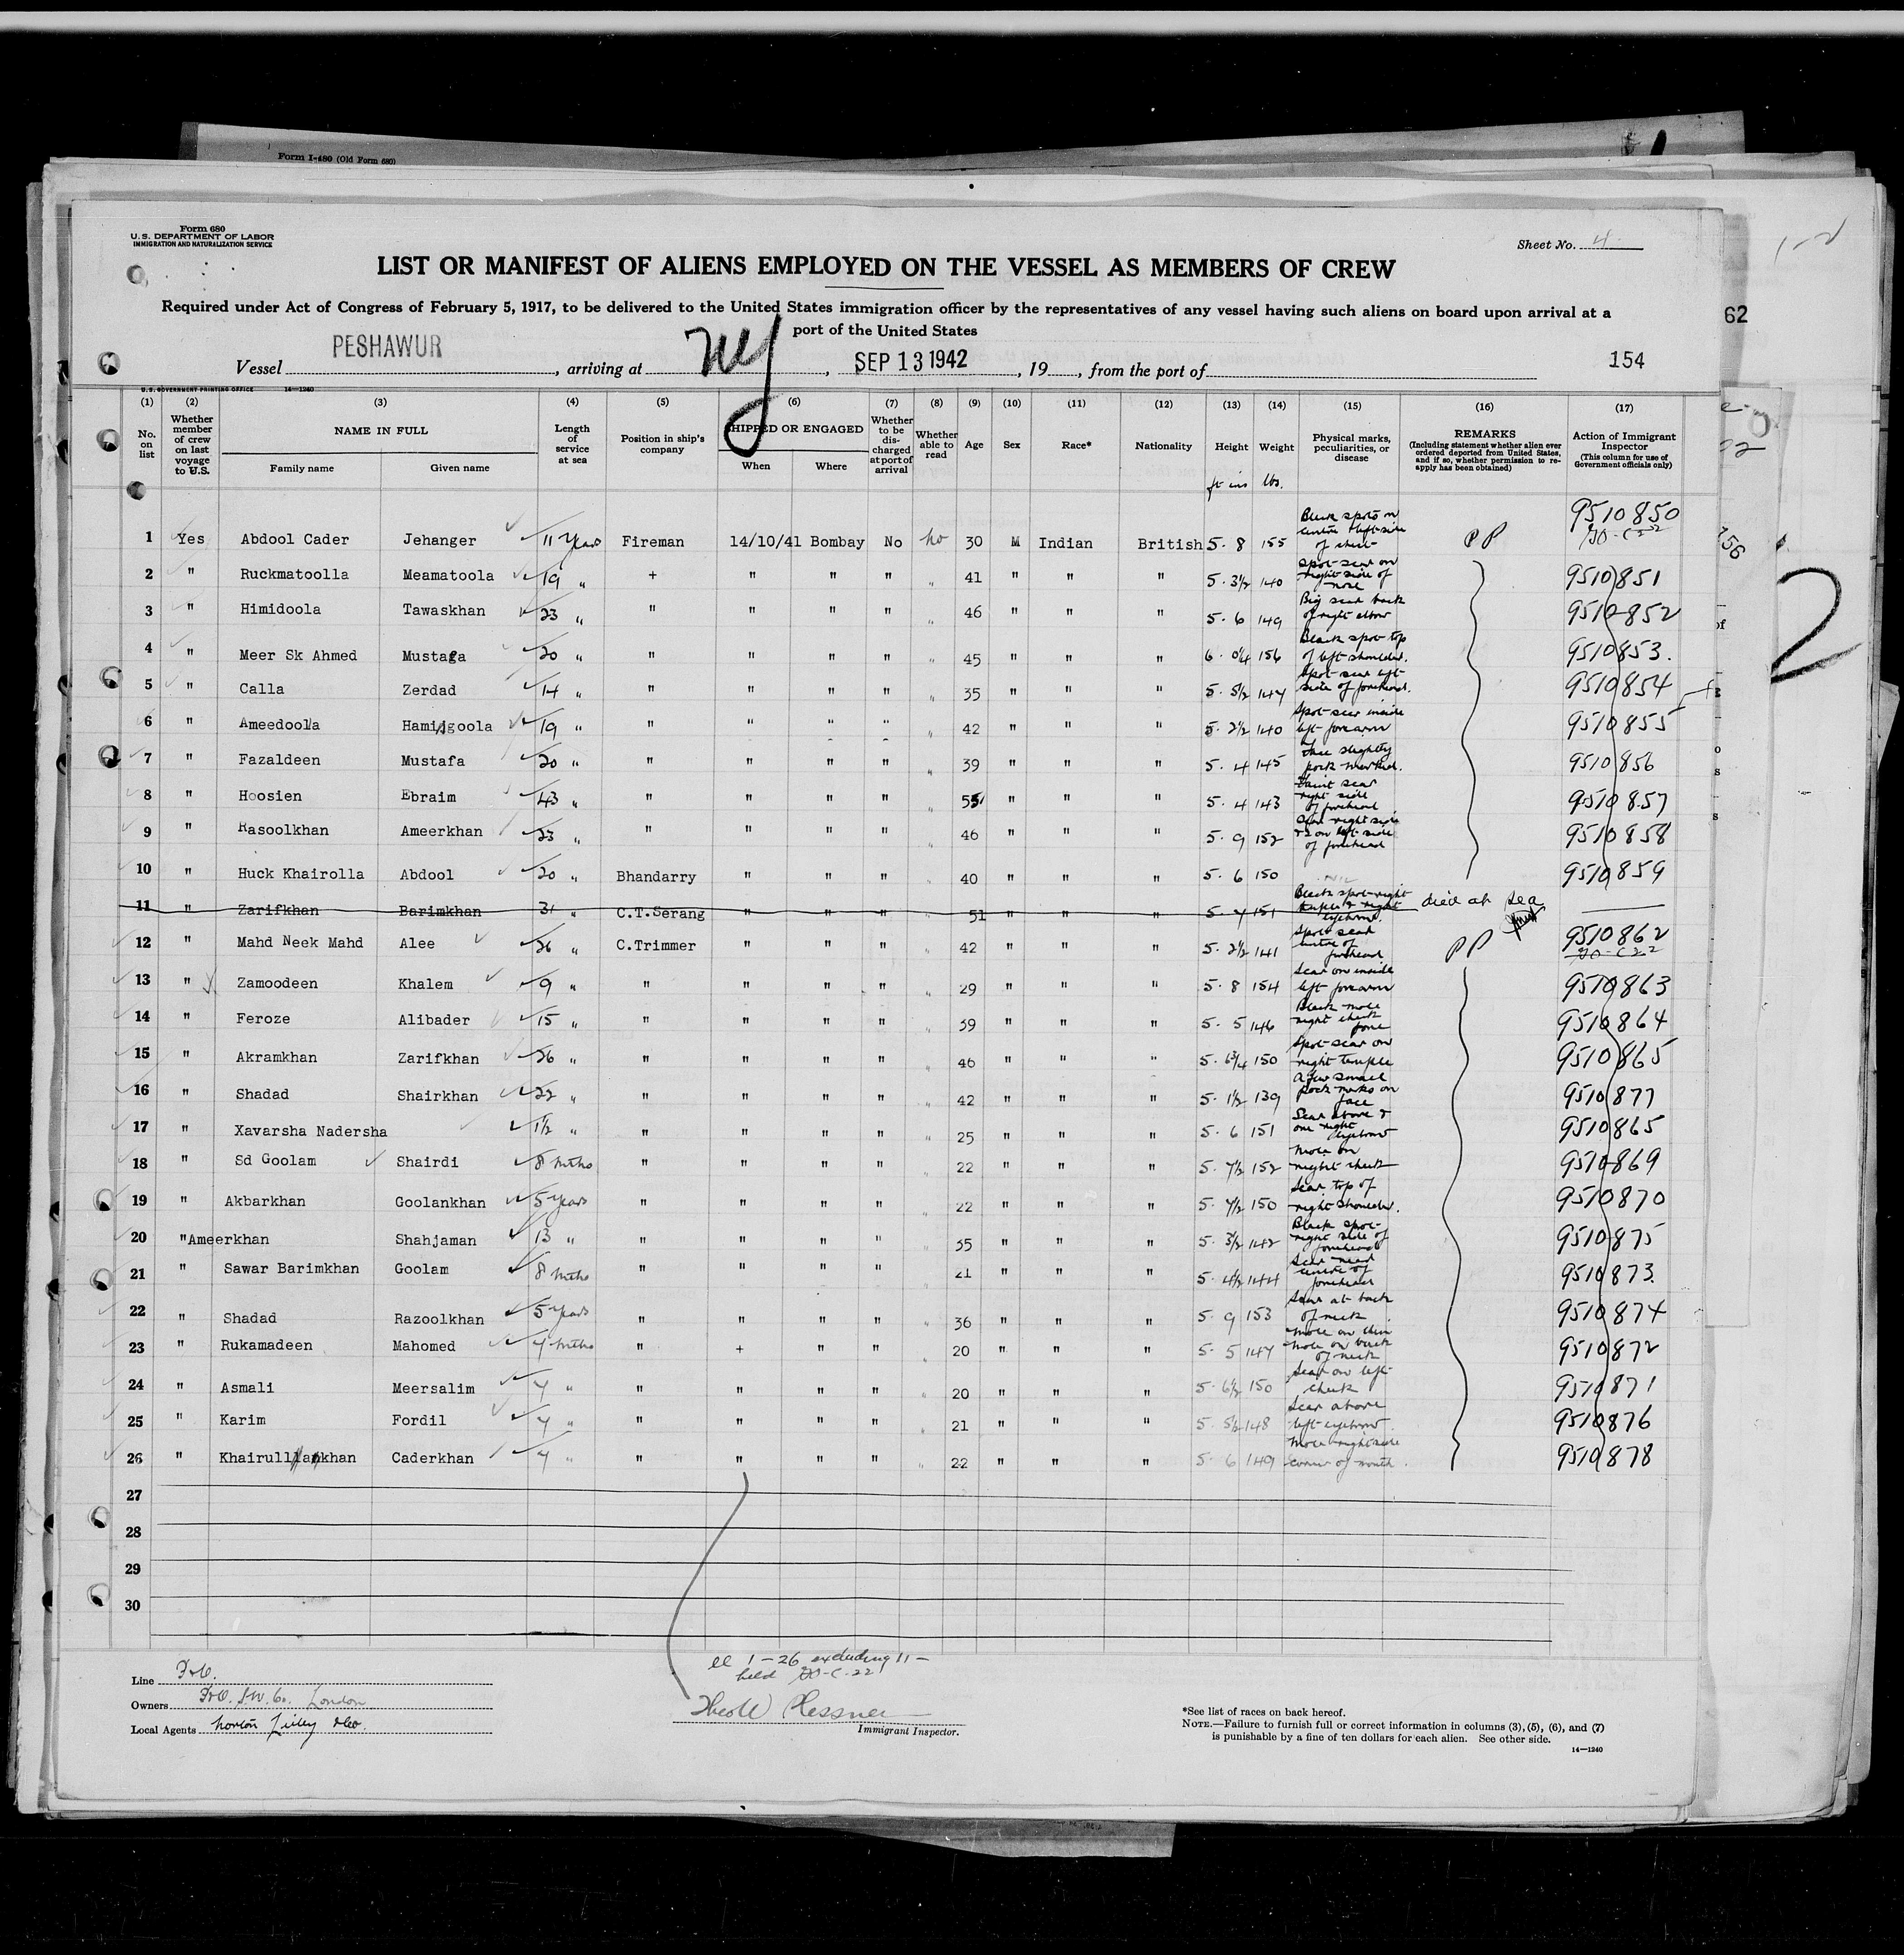 Form I-480 (Old Form 680)
Form 680
U. S. DEPARTMENT OF LABOR
IMMIGRATION AND NATURALIZATION SERVICE
Sheet No. 4
LIST OR MANIFEST OF ALIENS EMPLOYED ON THE VESSEL AS MEMBERS OF CREW
Required under Act of Congress of February 5, 1917, to be delivered to the United States immigration officer by the representatives of any vessel having such aliens on board upon arrival at a
port of the United States
62
Vessel PESHAWUR, arriving at NY, SEP 13 1942, 19, from the port of 154
U. S. GOVERNMENT PRINTING OFFICE 14—1240
(1) (2) (3) (4) (5) (6) (7) (8) (9) (10) (11) (12) (13) (14) (15) (16) (17)
No. on list
Whether member of crew on last voyage to U.S.
NAME IN FULL
Family name
Given name
Length of service at sea
Position in ship's company
SHIPPED OR ENGAGED
When
Where
Whether to be discharged at port of arrival
Whether able to read
Age
Sex
Race*
Nationality
Height
ft ins
Weight
lbs.
Physical marks, peculiarities, or disease
REMARKS
(Including statement whether alien ever ordered deported from United States, and if so, whether permission to reapply has been obtained)
Action of Immigrant Inspector
(This column for use of Government officials only)
1 Yes Abdool Cader Jehanger 11 Years Fireman 14/10/41 Bombay No no 30 M Indian British 5. 8 155 Black spots on centre & left side of chest PP 9510850
2 " Ruckmatoolla Meamatoola 19 " + " " " " 41 " " " 5. 3½ 140 Spot scar on right side of nose 9510851
3 " Himidoola Tawaskhan 23 " " " " " " 46 " " " 5. 6 149 Big scar back of right elbow 9510852
4 " Meer Sk Ahmed Mustafa 20 " " " " " " 45 " " " 6. 0¼ 156 Black spot top of left shoulder. 9510853.
5 " Calla Zerdad 14 " " " " " " 35 " " " 5. 5½ 147 Spot scar left side of forehead. 9510854
6 " Ameedoola Hamidgoola 19 " " " " " " 42 " " " 5. 2½ 140 Spot scar inside left forearm 9510855
7 " Fazaldeen Mustafa 20 " " " " " " 39 " " " 5. 4 145 Face slightly pock marked. 9510856
8 " Hoosien Ebraim 43 " " " " " " 55 " " " 5. 4 143 Faint scar right side of forehead 9510857
9 " Rasoolkhan Ameerkhan 23 " " " " " " 46 " " " 5. 9 152 Scar right side & 2 on left side of forehead 9510858
10 " Huck Khairolla Abdool 20 " Bhandarry " " " " 40 " " " 5. 6 150 9510859
11 " Zarifkhan Barimkhan 31 " C.T.Serang " " " " 51 " " " 5. 7 151 Black spot right temple & right eyebrow. died at sea
12 " Mahd Neek Mahd Alee 26 " C.Trimmer " " " " 42 " " " 5. 2½ 141 Spot scar centre of forehead PP 9510862
13 " Zamoodeen Khalem 9 " " " " " " 29 " " " 5. 8 154 Scar on inside left forearm 9510863
14 " Feroze Alibader 15 " " " " " " 39 " " " 5. 5 146 Black mole right cheek bone 9510864
15 " Akramkhan Zarifkhan 26 " " " " " " 46 " " " 5. 6¾ 150 Spot scar on right temple 9510865
16 " Shadad Shairkhan 22 " " " " " " 42 " " " 5. 1½ 139 A few small pock marks on face 9510877
17 " Xavarsha Nadersha 1½ " " " " " " 25 " " " 5. 6 151 Scar above & one right eyebrow 9510865
18 " Sd Goolam Shairdi 8 mths " " " " " 22 " " " 5. 7½ 152 Mole on right cheek 9510869
19 " Akbarkhan Goolankhan 5 Years " " " " " 22 " " " 5. 7½ 150 Scar top of right shoulder. 9510870
20 " Ameerkhan Shahjaman 13 " " " " " " 35 " " " 5. 3½ 142 Black spot right side of forehead 9510875
21 " Sawar Barimkhan Goolam 8 mths " " " " " 21 " " " 5. 4½ 144 Scar near centre of forehead 9510873.
22 " Shadad Razoolkhan 5 Years " " " " " 36 " " " 5. 9 153 Scar at back of neck 9510874
23 " Rukamadeen Mahomed 4 mths " + " " " 20 " " " 5. 5 147 Mole on chin mole on back of neck 9510872
24 " Asmali Meersalim 4 " " " " " " 20 " " " 5. 6½ 150 Scar on left cheek 9510871
25 " Karim Fordil 4 " " " " " " 21 " " " 5. 5½ 148 Scar above left eyebrow 9510876
26 " Khairullankhan Caderkhan 4 " " " " " " 22 " " " 5. 6 149 Mole right side corner of mouth 9510878
27
28
29
30
1 - 26 excluding 11 -
held
Line P&O.
Owners P&O. S.N. Co. London
Local Agents Norton Lilly & Co.
Immigrant Inspector.
*See list of races on back hereof.
NOTE.—Failure to furnish full or correct information in columns (3), (5), (6), and (7)
is punishable by a fine of ten dollars for each alien. See other side.
14—1240
2